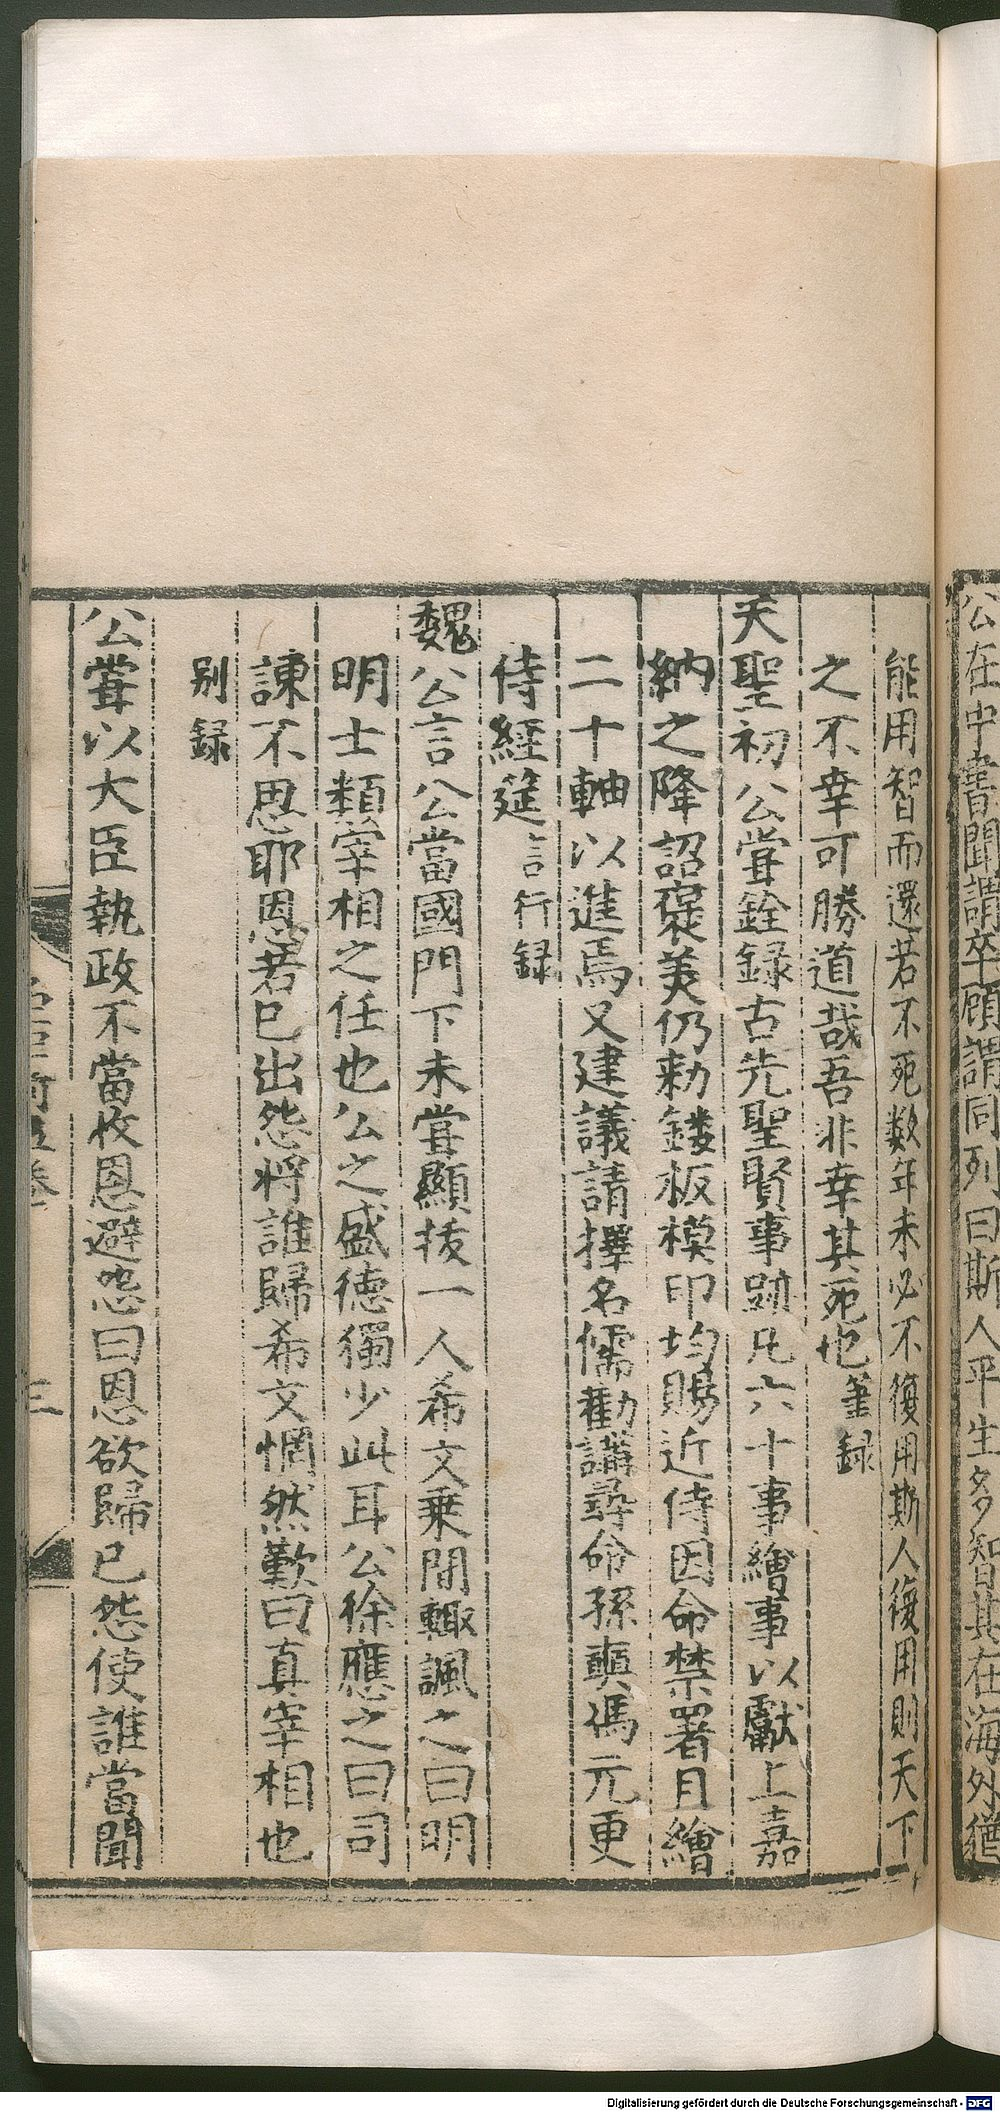 公在中書聞謂卒顧謂同列曰斯人平生多智其在海外猶
能用智而還若不死数年未必不復用斯人復用則天下
之不幸可勝道哉吾非幸其死也筆録
天聖初公甞銓録古先聖賢事跡凡六十事繪事以獻上嘉
納之降詔褒美仍勑鏤板模印均賜近侍因命禁署月繪
二十軸以進焉又建議請擇名儒勸講尋命孫奭馮元更
侍經筵言行録
魏公言公當國門下未甞顯拔一人希文乗間輙諷之曰明
明士類宰相之任也公之盛德獨少此耳公徐應之曰司
諫不思耶恩若已出怨将誰歸希文惘然歎曰真宰相也
别録
公甞以大臣執政不當收恩避怨曰恩欲歸已怨使誰當聞
三
Digitalisierung gefördert durch die Deutsche Forschungsgemeinschaft - DFG